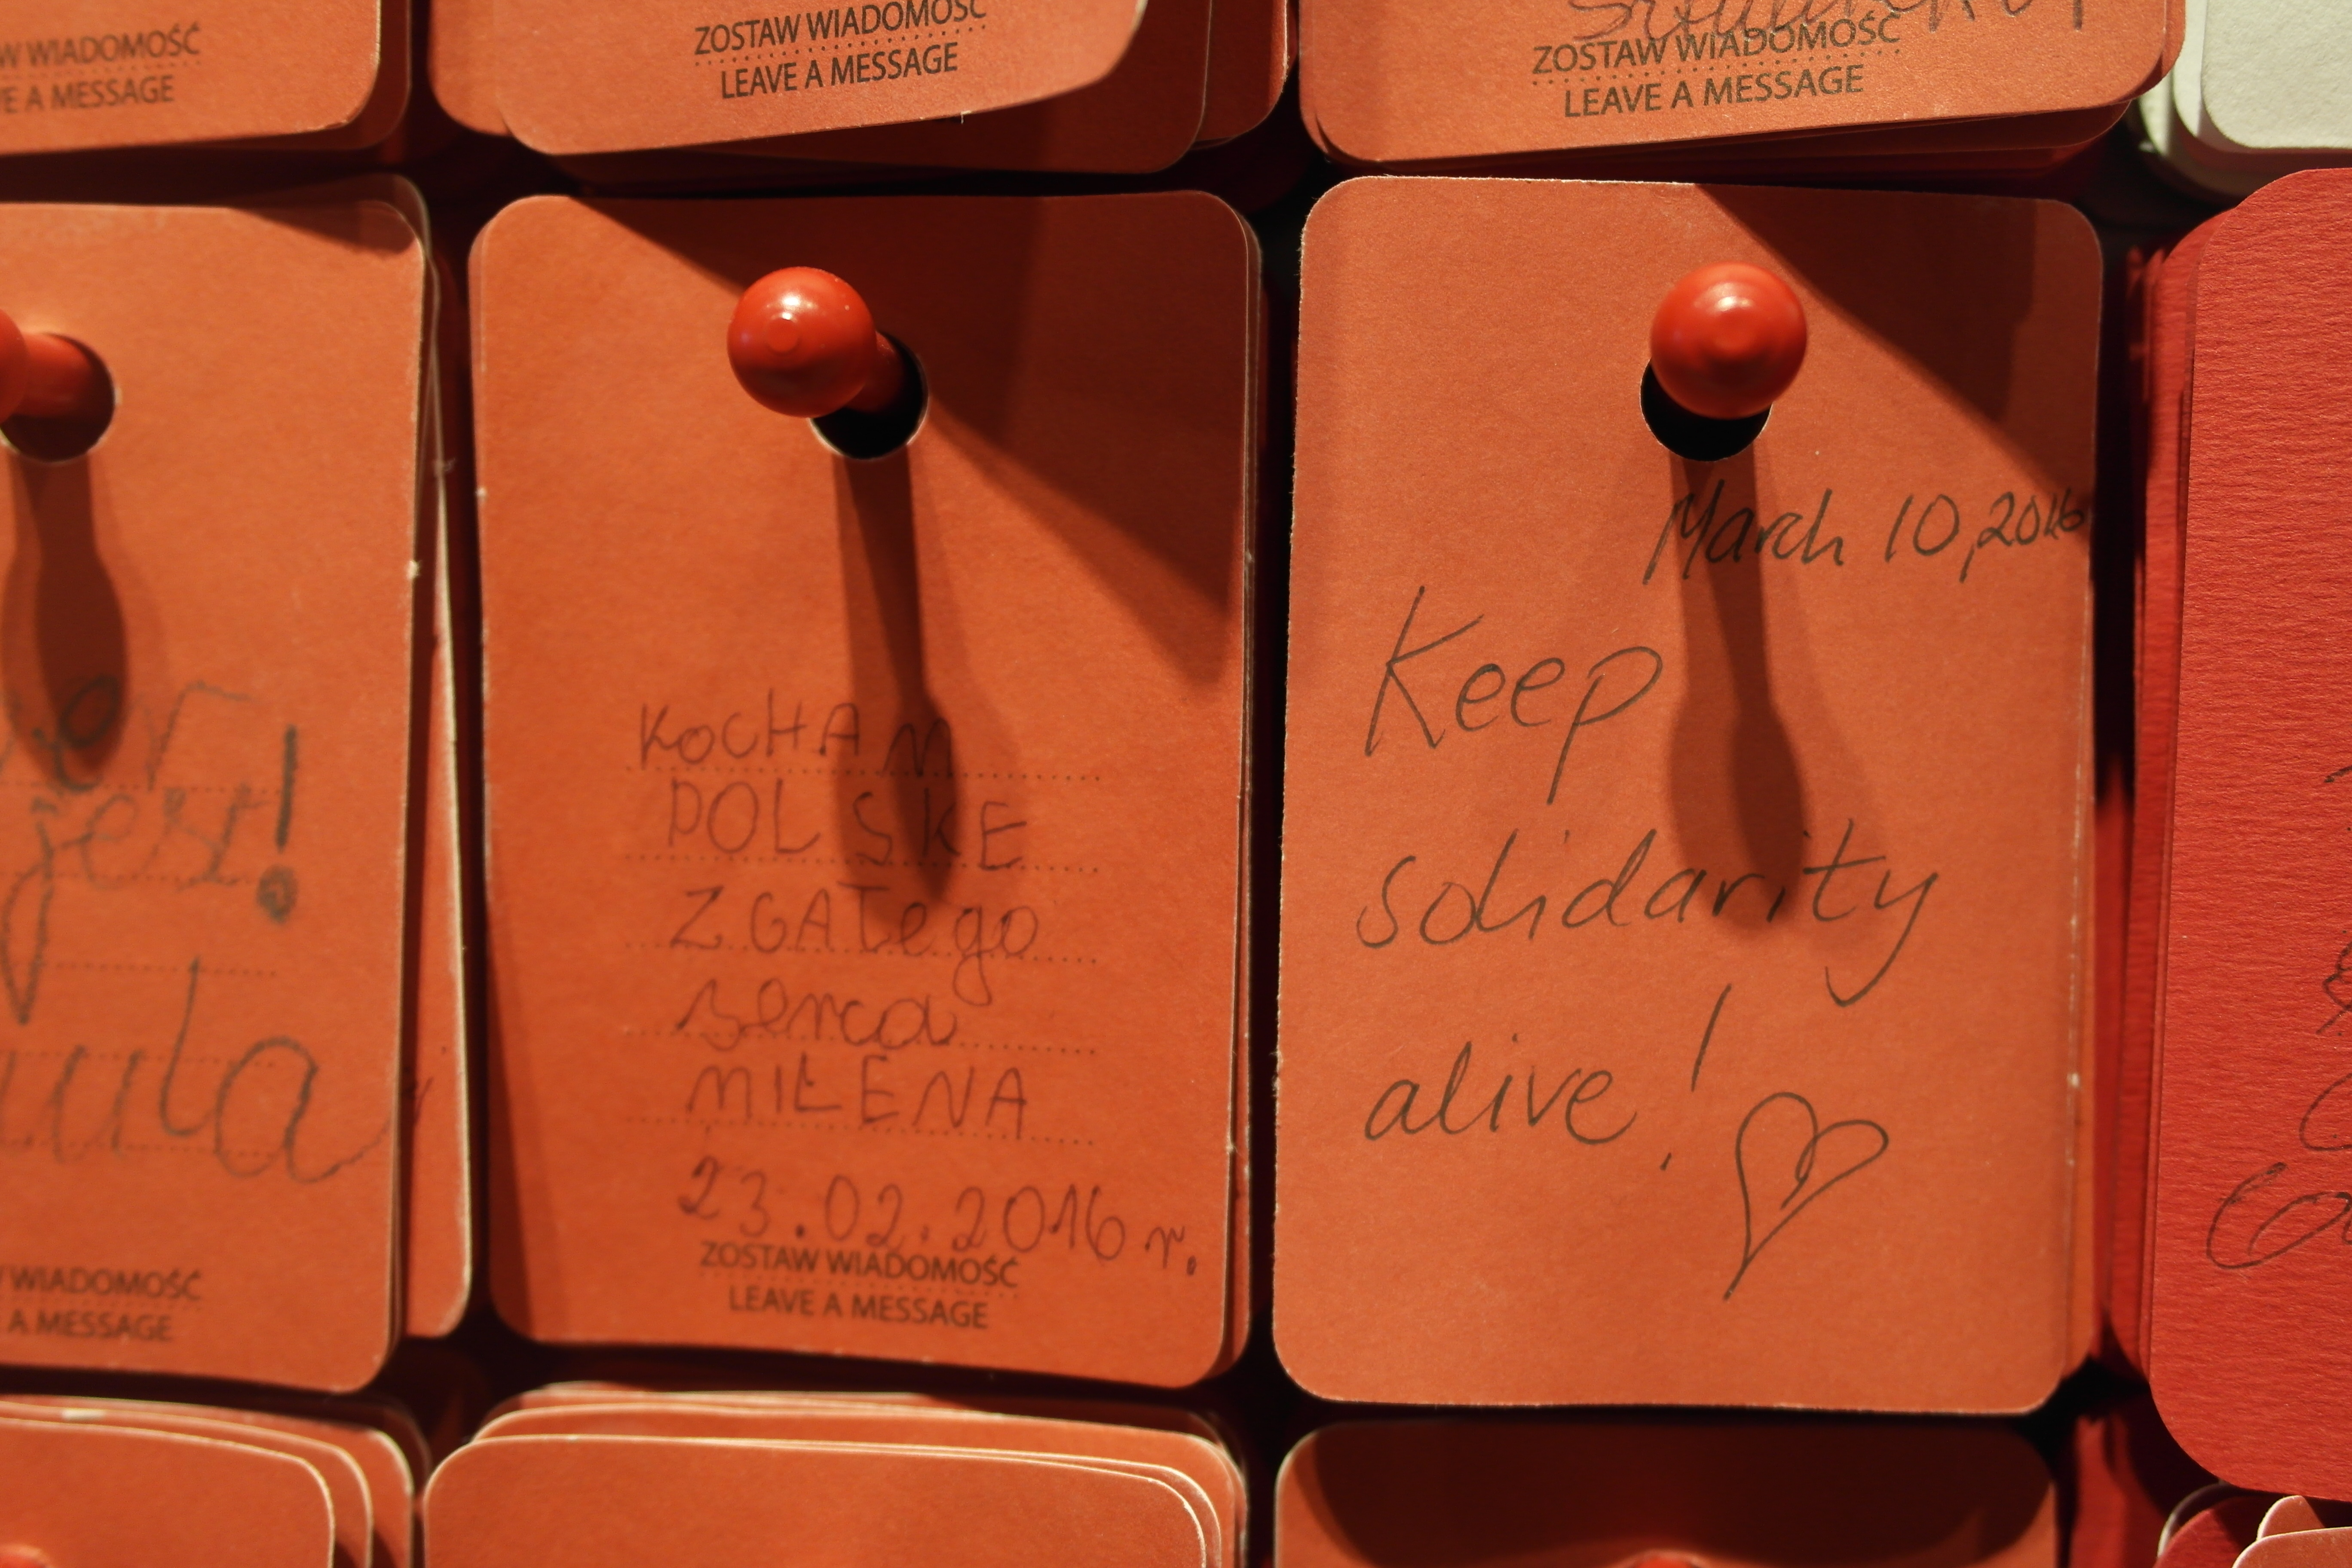 ZOSTAW WIADOMOŚĆ
LEAVE A MESSAGE
ZOSTAW WIADOMOŚĆ
LEAVE A MESSAGE
WIADOMOŚĆ
A MESSAGE
jest!
WIADOMOŚĆ
A MESSAGE
KOCHAM
POLSKE
Z CAŁego
serca
MIŁENA
23.02.2016 r.
ZOSTAW WIADOMOŚĆ
LEAVE A MESSAGE
March 10, 2016
Keep
solidarity
alive!